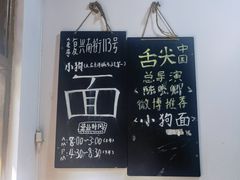 复兴南街113号
小狗
面
营业时间
AM 8:00-3:00
PM 4:30-8:30
舌尖中国
总导演
《陈晓卿》
微博推荐
《小狗面》